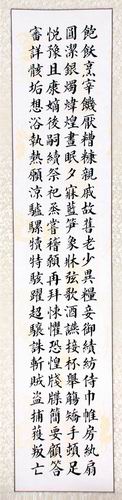 飽飫烹宰饑厭糟糠親戚故舊老少異糧妾御績紡侍巾帷房紈扇
圓潔銀燭煒煌晝眠夕寐藍笋象牀弦歌酒讌接杯舉觴矯手頓足
悅豫且康嫡後嗣續祭祀蒸嘗稽顙再拜悚懼恐惶牋牒簡要顧答
審詳骸垢想浴執熱願涼驢騾犢特駭躍超驤誅斬賊盜捕獲叛亡